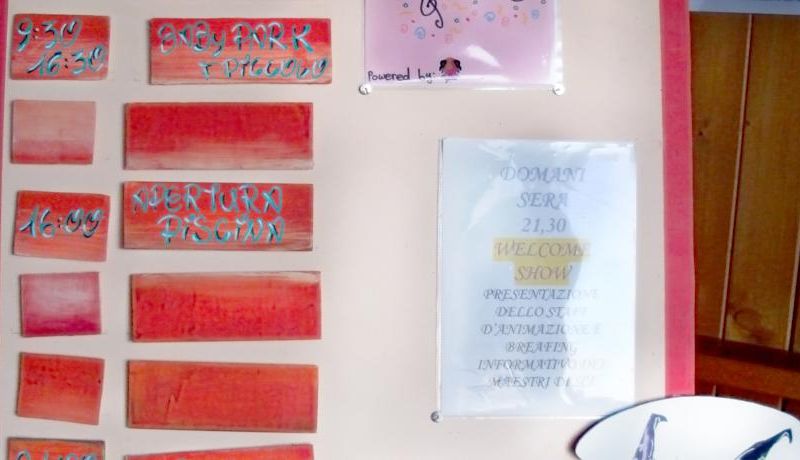 9:30
16:30
BABY PARK
Powered by:
16:00
APERTURA
PISCINA
DOMANI
SERA
21,30
WELCOME
SHOW
PRESENTAZIONE
DELLO STAFF
D'ANIMAZIONE E
BREAFING
INFORMATIVO DEI
MAESTRI DI SCI